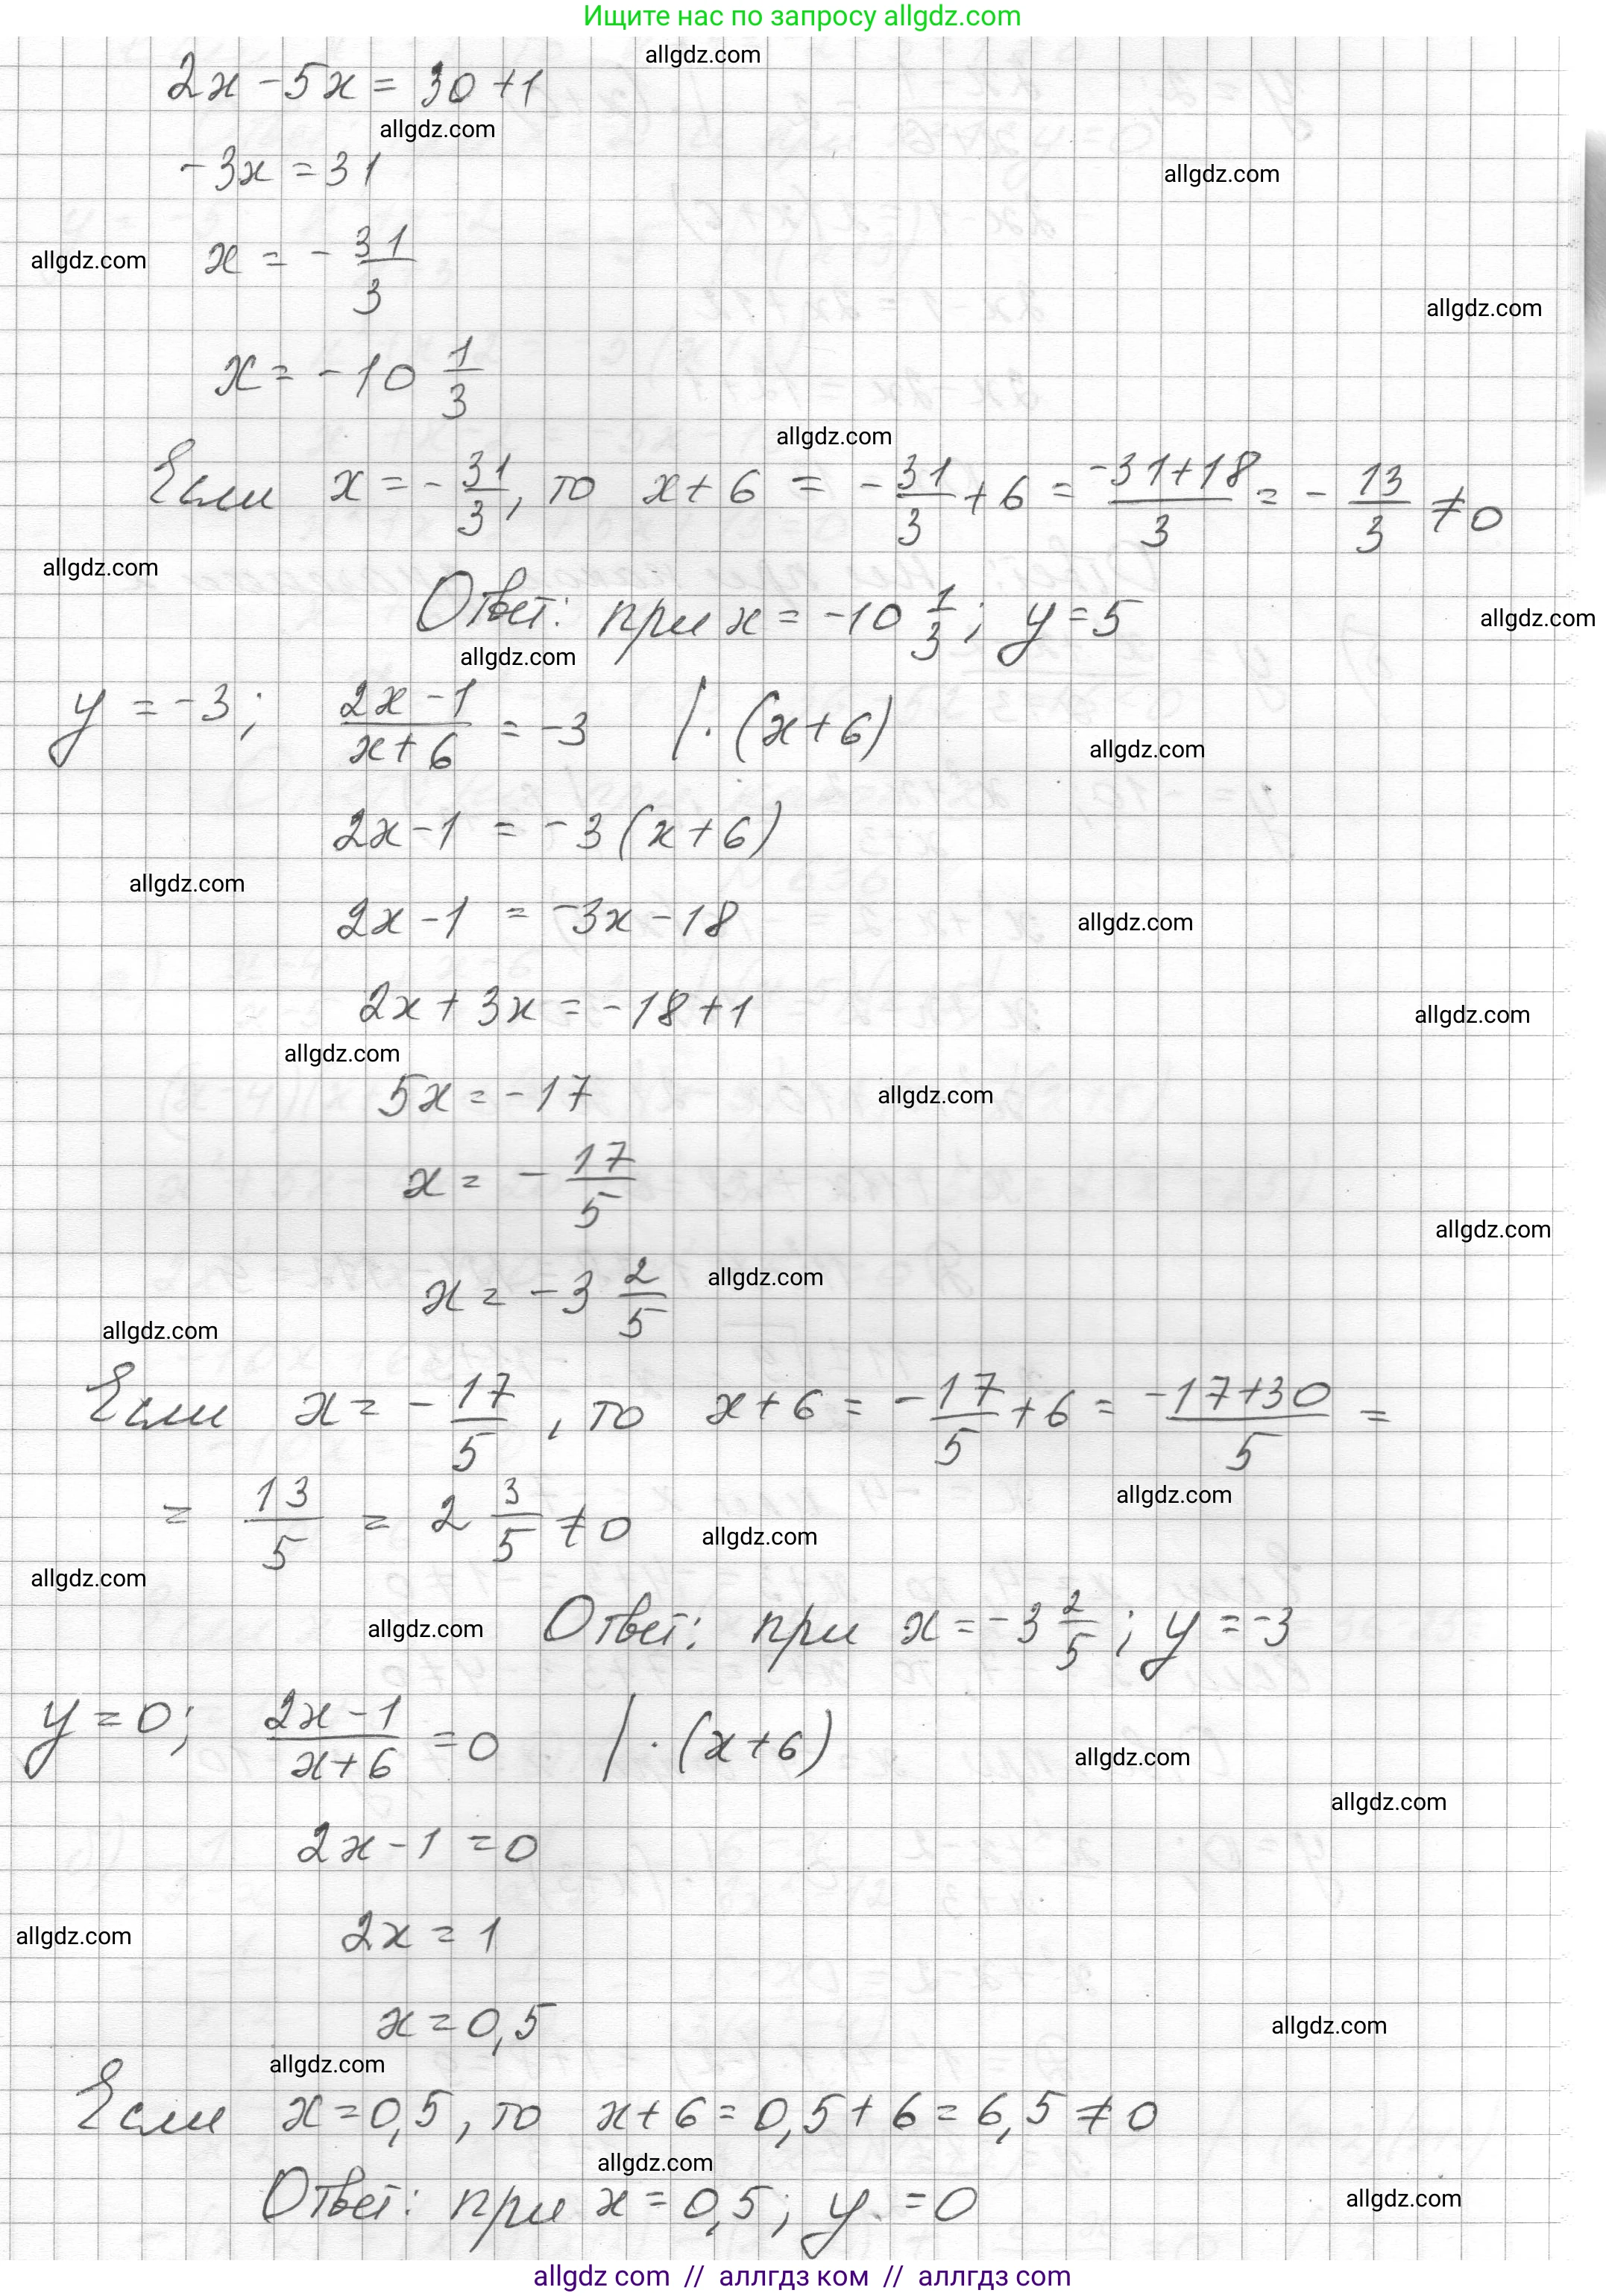 Ищите нас по запросу allgdz.com
allgdz.com
2x - 5x = 30 + 1
allgdz.com
-3x = 31
allgdz.com
x = - 31/3
allgdz.com
allgdz.com
x = -10 1/3
allgdz.com
Если x = - 31/3, то x + 6 = - 31/3 + 6 = (-31+18)/3 = - 13/3 ≠ 0
allgdz.com
Ответ: при x = -10 1/3; y = 5
allgdz.com
allgdz.com
y = -3; (2x - 1)/(x + 6) = -3 | · (x + 6)
allgdz.com
2x - 1 = -3 (x + 6)
allgdz.com
2x - 1 = -3x - 18
allgdz.com
2x + 3x = -18 + 1
allgdz.com
allgdz.com
5x = -17
allgdz.com
x = - 17/5
allgdz.com
x = -3 2/5
allgdz.com
allgdz.com
Если x = - 17/5, то x + 6 = - 17/5 + 6 = (-17+30)/5 =
allgdz.com
= 13/5 = 2 3/5 ≠ 0
allgdz.com
allgdz.com
Ответ: при x = -3 2/5; y = -3
allgdz.com
y = 0; (2x - 1)/(x + 6) = 0 | · (x + 6)
allgdz.com
allgdz.com
2x - 1 = 0
2x = 1
allgdz.com
x = 0,5
allgdz.com
allgdz.com
Если x = 0,5, то x + 6 = 0,5 + 6 = 6,5 ≠ 0
allgdz.com
Ответ: при x = 0,5; y = 0
allgdz.com
allgdz com // аллгдз ком // аллгдз com